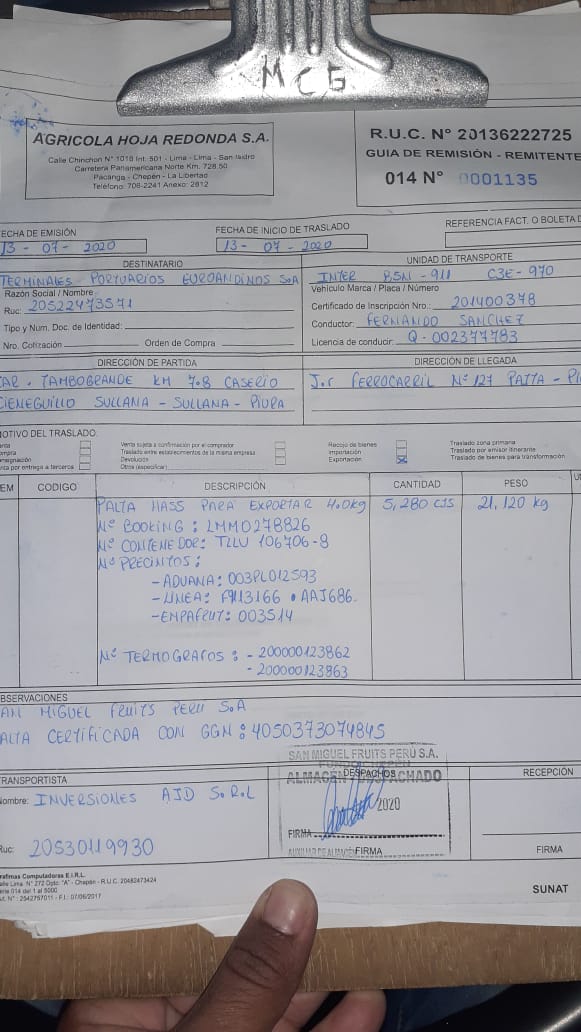 MCG
AGRICOLA HOJA REDONDA S.A.
Calle Chinchon N° 1018 Int. 501 - Lima - Lima - San Isidro
Carretera Panamericana Norte Km. 728.50
Pacanga - Chepén - La Libertad
Teléfono: 706-2241 Anexo: 2812
R.U.C. N° 20136222725
GUIA DE REMISIÓN - REMITENTE
014 N° 0001135
FECHA DE EMISIÓN
13 - 07 - 2020
FECHA DE INICIO DE TRASLADO
13 - 07 - 2020
REFERENCIA FACT. O BOLETA D
DESTINATARIO
TERMINALES PORTUARIOS EUROANDINOS S.A
Razón Social / Nombre
Ruc: 20522473571
Tipo y Num. Doc. de Identidad:
Nro. Cotización Orden de Compra
UNIDAD DE TRANSPORTE
INTER BSN-911 C3E-970
Vehículo Marca / Placa / Número
Certificado de Inscripción Nro.: 201400378
Conductor: FERNANDO SANCHEZ
Licencia de conducir: Q-002377783
DIRECCIÓN DE PARTIDA
CAR. TAMBOGRANDE KM 7.8 CASERIO
CIENEGUILLO SULLANA - SULLANA - PIURA
DIRECCIÓN DE LLEGADA
Jr FERROCARRIL N° 127 PAITA - PI
MOTIVO DEL TRASLADO:
Venta sujeta a confirmación por el comprador
Traslado entre establecimientos de la misma empresa
Devolución
Otros (especificar)
Recojo de bienes
Importación
Exportación
Traslado zona primaria
Traslado por emisor itinerante
Traslado de bienes para transformación
CODIGO DESCRIPCIÓN CANTIDAD PESO
PALTA HASS PARA EXPORTAR 4.0kg 5,280 cjs 21,120 kg
N° BOOKING: LMM0278826
N° CONTENEDOR: TLLU 106706-8
N° PRECINTOS:
- ADUANA: 003PL012593
- LINEA: • AAJ686
- EMPAFRUT: 003514
N° TERMOGRAFOS: - 200000123862
- 200000123863
OBSERVACIONES
SAN MIGUEL FRUITS PERU S.A
PALTA CERTIFICADA CON GGN: 4050373074845
SAN MIGUEL FRUITS PERÚ S.A.
DESPACHADO
2020
FIRMA
TRANSPORTISTA
Nombre: INVERSIONES AJD S.R.L
Ruc: 20530119930
FIRMA
RECEPCIÓN
FIRMA
Grafimas Computadoras E.I.R.L.
Calle Lima N° 272 Dpto. "A" - Chepén - R.U.C. 20482473424
Serie 014 del 1 al 5000
Aut. N° : 2542757011 - F.I.: 07/06/2017
SUNAT